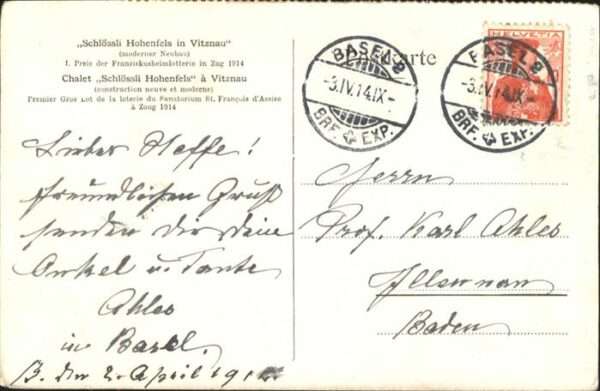 „Schlössli Hohenfels in Vitznau"
(moderner Neubau)
1. Preis der Franziskusheimlotterie in Zug 1914
Chalet „Schlössli Hohenfels" à Vitznau
(construction neuve et moderne)
Premier Gros Lot de la loterie du Sanatorium St. François d'Assise
à Zoug 1914
BASEL 2
-3.IV.14.IX-
BRF. EXP.
BASEL 2
-3.IV.14.IX-
BRF. EXP.
HELVETIA
Lieber Neffe!
freundlichen Gruß
senden dir deine
Onkel u. Tante
Ahles
in Basel.
B. den 2. April 191
Herrn
Prof. Karl Ahles
Illenau
Baden